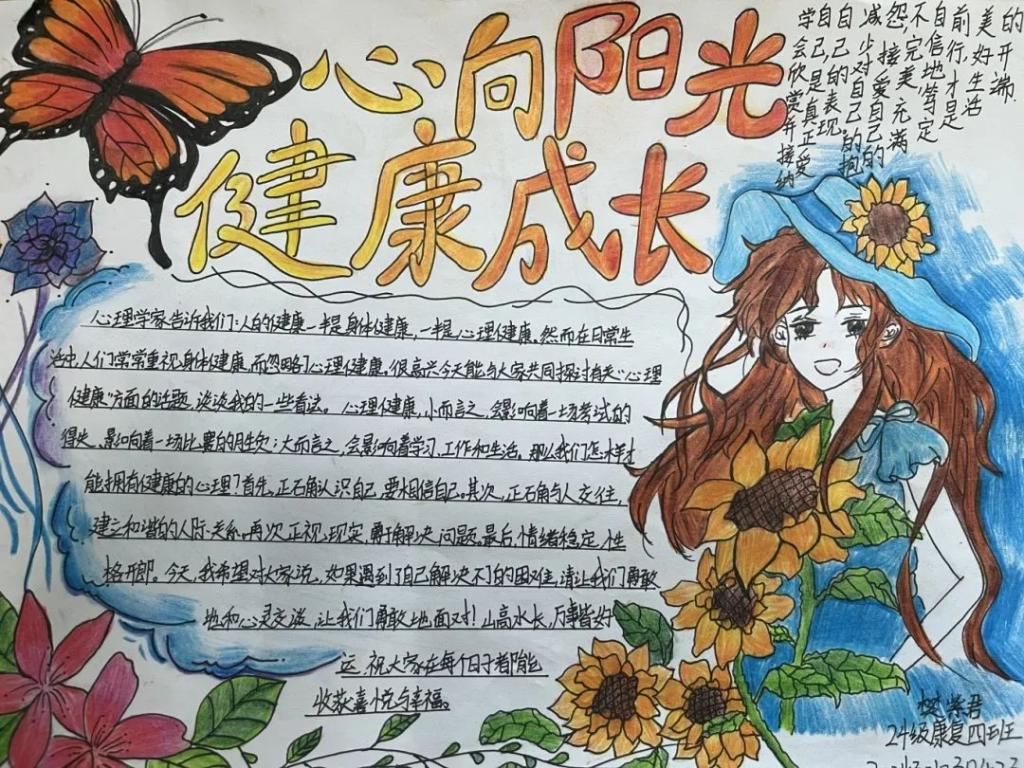 心向阳光
健康成长
学会欣赏并接纳
自己,是真正爱
自己的表现。
减少对自己的抱
怨,接爱自己的
不完美,充满
自信地笃定
前行,才是
美好生活
的开端.
心理学家告诉我们:人的健康一半是身体健康,一半是心理健康,然而在日常生
活中,人们常常重视身体健康,而忽略了心理健康,很高兴今天能与大家共同探讨有关“心理
健康”方面的话题,谈谈我的一些看法。心理健康,小而言之,会影响着一场考试的
得失,影响着一场比赛的胜负;大而言之,会影响着学习,工作和生活。那么我们怎样才
能拥有健康的心理?首先,正确认识自己,要相信自己。其次,正确与人交往,
建立和谐的人际关系。再次,正视现实,勇于解决问题。最后,情绪稳定,性
格开朗。今天,我希望对大家说,如果遇到了自己解决不了的困难,请让我们勇敢
地和心灵交谈,让我们勇敢地面对!山高水长,万事皆好
运,祝大家在每个日子都能
收获喜悦与幸福。
紫君
24级康复四班